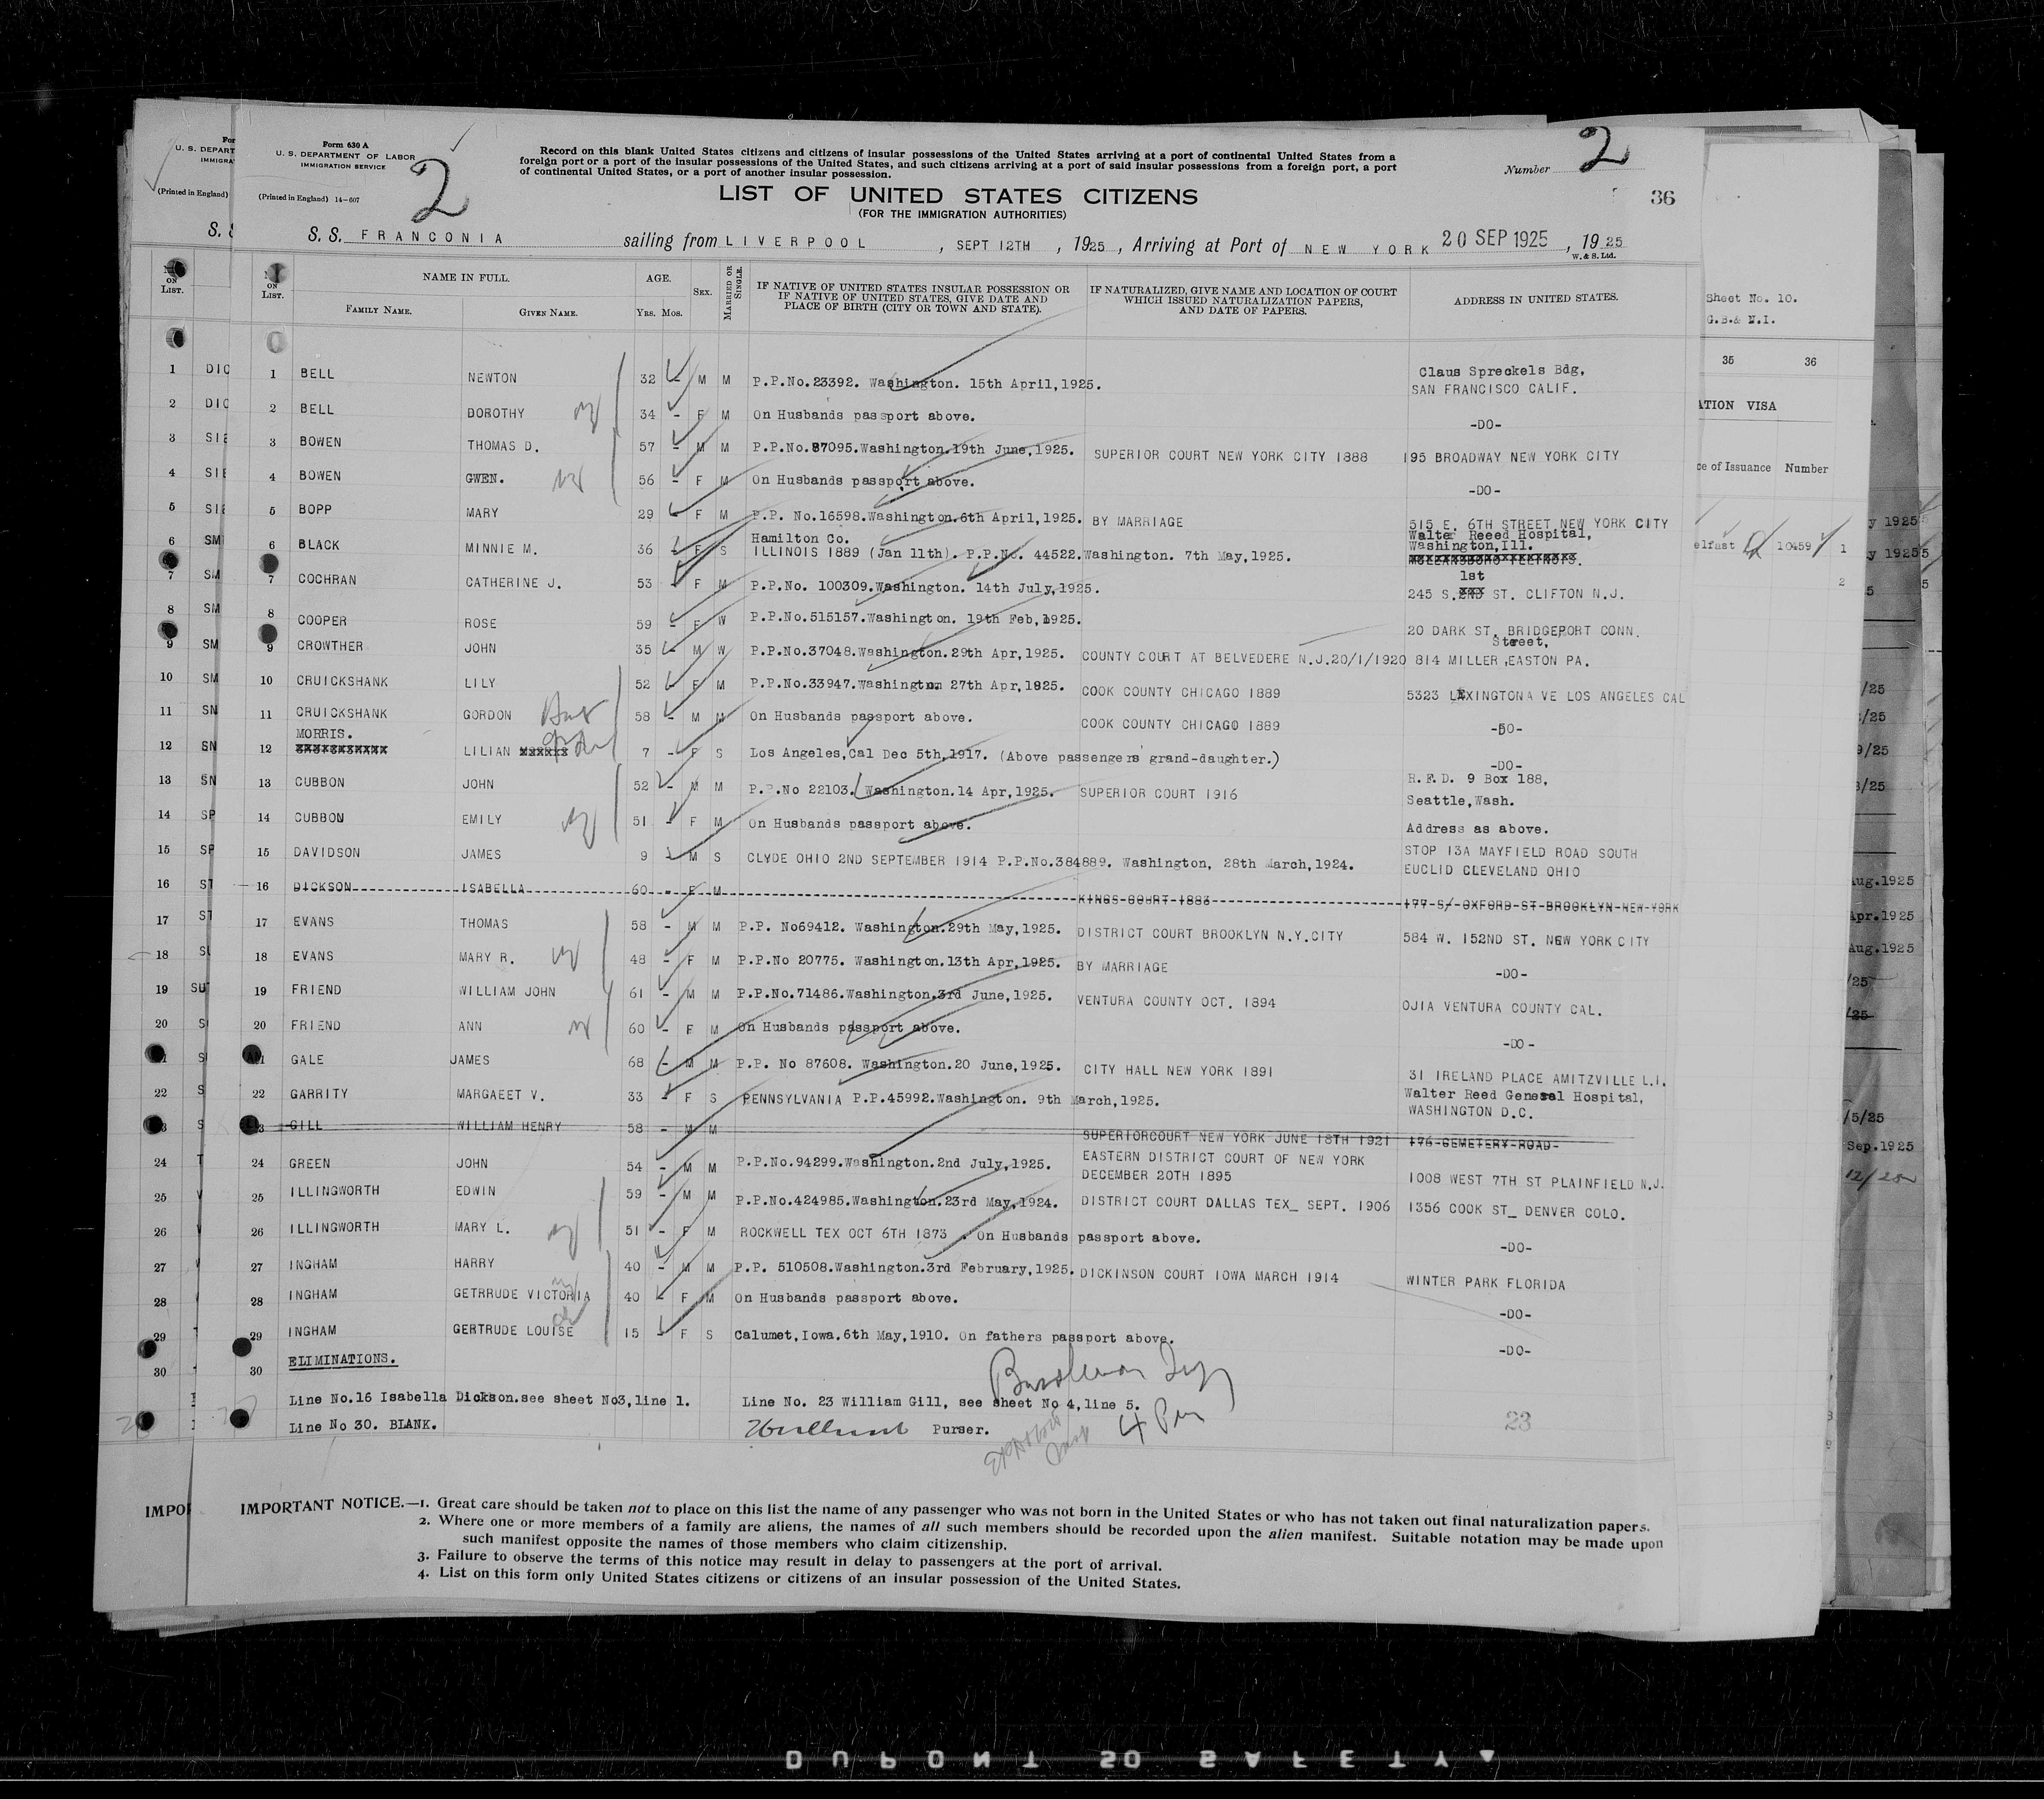 Form 630 A
U. S. DEPARTMENT OF LABOR
IMMIGRATION SERVICE
(Printed in England) 14-607
2
Record on this blank United States citizens and citizens of insular possessions of the United States arriving at a port of continental United States from a
foreign port or a port of the insular possessions of the United States, and such citizens arriving at a port of said insular possessions from a foreign port, a port
of continental United States, or a port of another insular possession.
LIST OF UNITED STATES CITIZENS
(FOR THE IMMIGRATION AUTHORITIES)
Number 2
36
S. S. FRANCONIA sailing from LIVERPOOL, SEPT 12TH, 1925, Arriving at Port of NEW YORK 20 SEP 1925, 1925
W. & S. Ltd.
No. ON LIST. NAME IN FULL. AGE. SEX. MARRIED OR SINGLE. IF NATIVE OF UNITED STATES INSULAR POSSESSION OR IF NATIVE OF UNITED STATES, GIVE DATE AND PLACE OF BIRTH (CITY OR TOWN AND STATE). IF NATURALIZED, GIVE NAME AND LOCATION OF COURT WHICH ISSUED NATURALIZATION PAPERS, AND DATE OF PAPERS. ADDRESS IN UNITED STATES.
FAMILY NAME. GIVEN NAME. Yrs. Mos.
1 BELL NEWTON 32 - M M P.P.No.23392. Washington. 15th April,1925. Claus Spreckels Bdg, SAN FRANCISCO CALIF.
2 BELL DOROTHY 34 - F M On Husbands passport above. -DO-
3 BOWEN THOMAS D. 57 - M M P.P.No.87095.Washington.19th June,1925. SUPERIOR COURT NEW YORK CITY 1888 195 BROADWAY NEW YORK CITY
4 BOWEN GWEN. 56 - F M On Husbands passport above. -DO-
5 BOPP MARY 29 - F M P.P. No.16598.Washington.6th April,1925. BY MARRIAGE 515 E. 6TH STREET NEW YORK CITY
6 BLACK MINNIE M. 36 - F S Hamilton Co. ILLINOIS 1889 (Jan 11th). P.P.No. 44522.Washington. 7th May,1925. Walter Reeed Hospital, Washington,Ill. MCLEANSBORO ILLINOIS.
7 COCHRAN CATHERINE J. 53 - F M P.P.No. 100309.Washington. 14th July,1925. 245 S.2ND 1st ST. CLIFTON N.J.
8 COOPER ROSE 59 - F W P.P.No.515157.Washington. 19th Feb,1925. 20 DARK ST. BRIDGEPORT CONN.
9 CROWTHER JOHN 35 - M W P.P.No.37048.Washington.29th Apr,1925. COUNTY COURT AT BELVEDERE N.J.20/1/1920 814 MILLER Street, EASTON PA.
10 CRUICKSHANK LILY 52 - F M P.P.No.33947.Washington 27th Apr,1925. COOK COUNTY CHICAGO 1889 5323 LEXINGTONA VE LOS ANGELES CAL
11 CRUICKSHANK GORDON 58 - M M On Husbands passport above. COOK COUNTY CHICAGO 1889 -DO-
12 MORRIS. LILIAN 7 - F S Los Angeles,Cal Dec 5th,1917. (Above passengers grand-daughter.) -DO-
13 CUBBON JOHN 52 - M M P.P.No 22103. Washington.14 Apr,1925. SUPERIOR COURT 1916 R.F.D. 9 Box 188, Seattle,Wash.
14 CUBBON EMILY 51 - F M On Husbands passport above. Address as above.
15 DAVIDSON JAMES 9 - M S CLYDE OHIO 2ND SEPTEMBER 1914 P.P.No.384889. Washington, 28th March,1924. STOP 13A MAYFIELD ROAD SOUTH EUCLID CLEVELAND OHIO
16 DICKSON ISABELLA 60 - F M KINGS COURT 1883 177 S/ OXFORD ST BROOKLYN NEW YORK
17 EVANS THOMAS 58 - M M P.P. No69412. Washington.29th May,1925. DISTRICT COURT BROOKLYN N.Y.CITY 584 W. 152ND ST. NEW YORK CITY
18 EVANS MARY R. 48 - F M P.P.No 20775. Washington.13th Apr,1925. BY MARRIAGE -DO-
19 FRIEND WILLIAM JOHN 61 - M M P.P.No.71486.Washington.3rd June,1925. VENTURA COUNTY OCT. 1894 OJIA VENTURA COUNTY CAL.
20 FRIEND ANN 60 - F M On Husbands passport above. -DO-
21 GALE JAMES 68 - M M P.P. No 87608. Washington.20 June,1925. CITY HALL NEW YORK 1891 31 IRELAND PLACE AMITZVILLE L.I.
22 GARRITY MARGAEET V. 33 - F S PENNSYLVANIA P.P.45992.Washington. 9th March,1925. Walter Reed General Hospital, WASHINGTON D.C.
23 GILL WILLIAM HENRY 58 - M M SUPERIORCOURT NEW YORK JUNE 18TH 1921 176 CEMETERY ROAD
24 GREEN JOHN 54 - M M P.P.No.94299.Washington.2nd July,1925. EASTERN DISTRICT COURT OF NEW YORK DECEMBER 20TH 1895 1008 WEST 7TH ST PLAINFIELD N.J.
25 ILLINGWORTH EDWIN 59 - M M P.P.No.424985.Washington.23rd May,1924. DISTRICT COURT DALLAS TEX_ SEPT. 1906 1356 COOK ST_ DENVER COLO.
26 ILLINGWORTH MARY L. 51 - F M ROCKWELL TEX OCT 6TH 1873 . On Husbands passport above. -DO-
27 INGHAM HARRY 40 - M M P.P. 510508.Washington.3rd February,1925. DICKINSON COURT IOWA MARCH 1914 WINTER PARK FLORIDA
28 INGHAM GETRRUDE VICTORIA 40 - F M On Husbands passport above. -DO-
29 INGHAM GERTRUDE LOUISE 15 - F S Calumet,Iowa.6th May,1910. On fathers passport above. -DO-
30 ELIMINATIONS.
Line No.16 Isabella Dickson.see sheet No3,line 1. Line No. 23 William Gill, see sheet No 4,line 5.
Line No 30. BLANK. Purser.
23
IMPORTANT NOTICE.—1. Great care should be taken not to place on this list the name of any passenger who was not born in the United States or who has not taken out final naturalization papers.
2. Where one or more members of a family are aliens, the names of all such members should be recorded upon the alien manifest. Suitable notation may be made upon
such manifest opposite the names of those members who claim citizenship.
3. Failure to observe the terms of this notice may result in delay to passengers at the port of arrival.
4. List on this form only United States citizens or citizens of an insular possession of the United States.
Sheet No. 10.
G.B.& N.I.
35 36
ATION VISA
ce of Issuance Number
elfast 10459
DUPONT 50 SAFETY